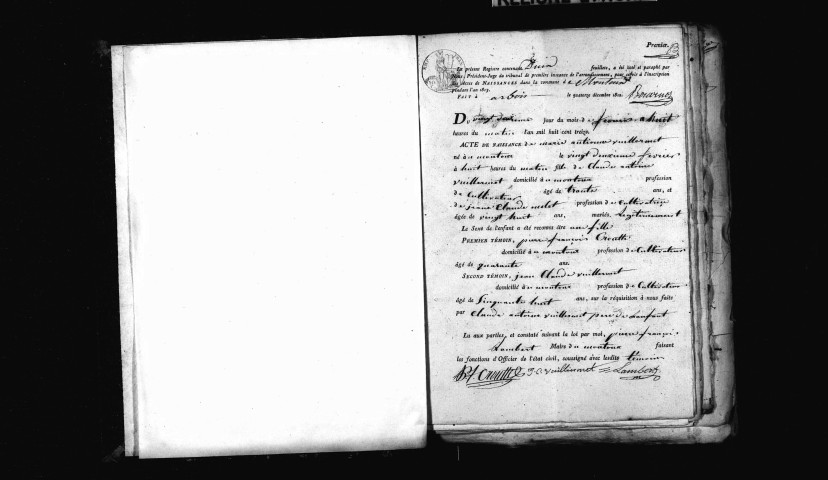 Premier.
Le présent Registre contenant feuillets, a été coté et paraphé par
Nous, Président-Juge du tribunal de première instance de l'arrondissement, pour servir à l'inscription
des actes de NAISSANCES dans la commune d
pendant l'an 1813.
FAIT à arbois le quatorze décembre 1812.
DU vingt deuxieme jour du mois de fevrier a huit
heures du matin l'an mil huit cent treize.
ACTE DE NAISSANCE de marie antoinne vuillermet
né à le vingt deuxieme fevrier
à huit heures du matin fille de Claude antoine
vuillermet domicilié à profession
de Cultivateur âgé de trente ans, et
de jeanne Claude profession de Cultivatrice
âgée de vingt huit ans, mariés Legitimement
Le Sexe de l'enfant a été reconnu être une fille
PREMIER TÉMOIN, pierre françois
domicilié à profession de Cultivateur
âgé de quarante ans.
SECOND TÉMOIN, jean Claude vuillermet
domicilié à profession de Cultivateur
âgé de Sinquante huit ans, sur la réquisition à nous faite
par Claude antoine vuillermet pere de Lenfant
Lu aux parties, et constaté suivant la loi par moi, pierre françois
Lambert Maire de faisant
les fonctions d'Officier de l'état civil, soussigné avec lesdits témoins
J. C. vuillermet Lambert